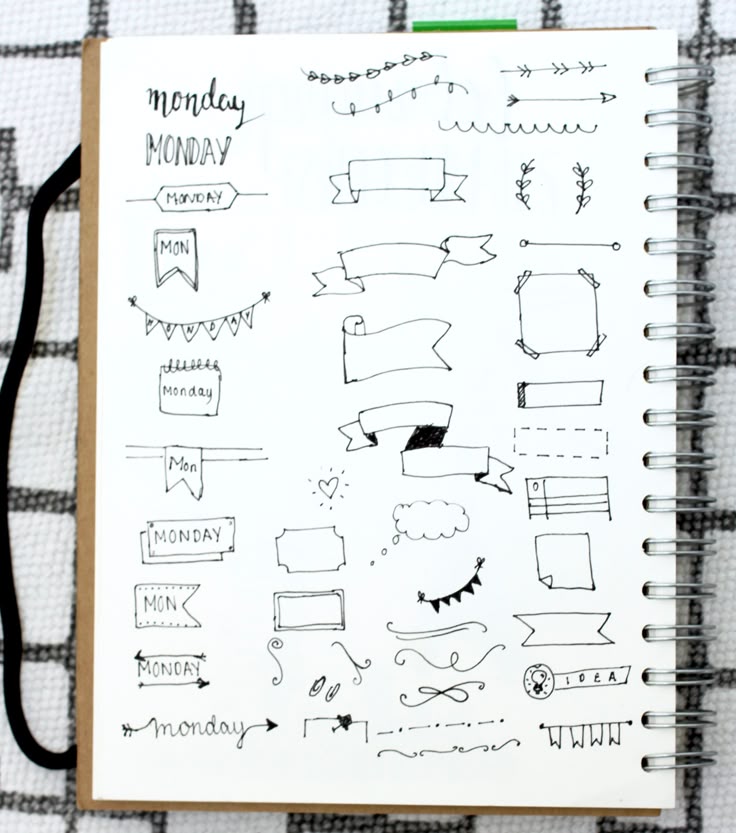 monday
MONDAY
MONDAY
MON
MONDAY
Monday
Mon
MONDAY
MON
MONDAY
IDEA
monday